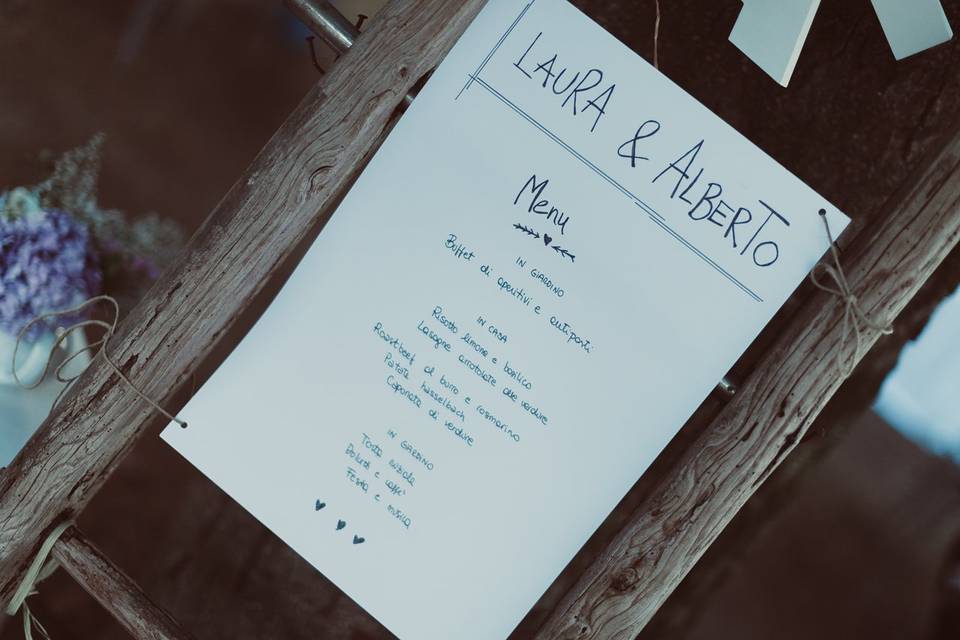 LAURA & ALBERTO
Menu
IN GIARDINO
Buffet di aperitivi e antipasti
IN CASA
Risotto limone e basilico
Lasagne arrotolate alle verdure
Roastbeef al burro e rosmarino
Patate hasselback
Caponata di verdure
IN GIARDINO
Torta nuziale
Dolcetti e caffè
Festa e musica